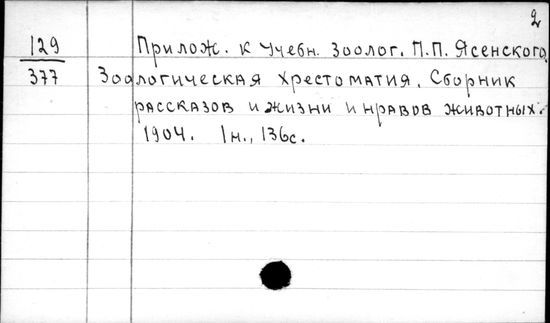 2
129 Прилож. к Учебн. Зоолог. П.П. Ясенского.
377 Зоологическая хрестоматия. Сборник
рассказов и жизни и нравов животных.
1904. 1н., 136с.